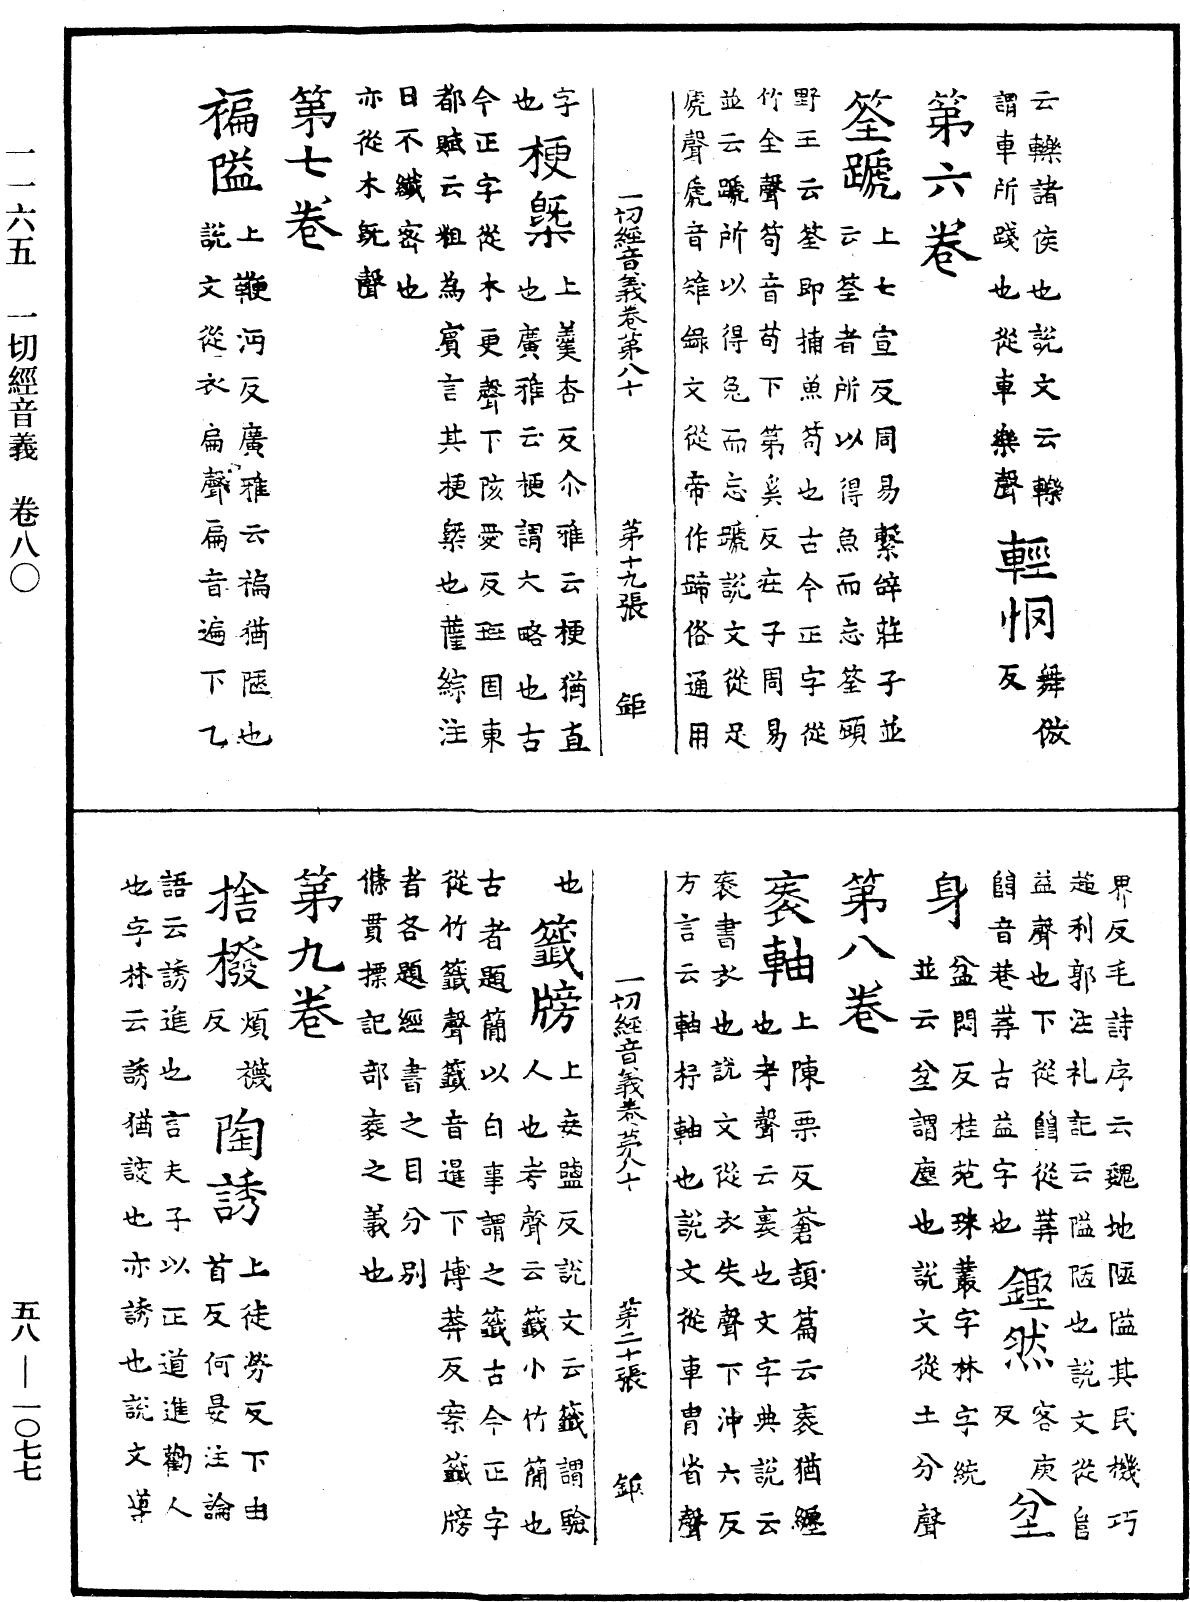 一一六五　一切經音義　卷八〇
云轢諸侯也說文云轢
謂車所踐也從車樂聲
輕惘
舞倣
反
第六卷
筌蹏
上七宣反同易繫辝莊子並
云筌者所以得魚而忘筌顧
野王云筌即捕魚笱也古今正字從
竹全聲笱音苟下第奚反莊子周易
並云蹏所以得兔而忘蹏說文從足
虒聲虒音雉録文從帝作蹄俗通用
一切經音義卷第八十　第十九張　鉅
字
也
梗槩
上羹杏反尒雅云梗猶直
也廣雅云梗謂大略也古
今正字從木更聲下陔愛反班固東
都賦云粗為賓言其梗槩也薩綜注
曰不纖密也
亦從木旣聲
第七卷
褊隘
上鞭沔反廣雅云褊猶陋也
說文從衣扁聲扁音遍下乙
界反毛詩序云魏地陿隘其民機巧
趍利郭注礼記云隘陋也說文從𨸏
益聲也下從𨺅從𦭝
𨺅音巷𦭝古益字也
鏗然
客庚
反
坌
身
盆悶反桂苑珠叢字林字統
並云坌謂塵也說文從土分聲
第八卷
袠軸
上陳栗反蒼頡篇云袠猶纏
也考聲云裹也文字典說云
袠書衣也說文從衣失聲下沖六反
方言云軸杼軸也說文從車冑省聲
一切經音義卷第八十　第二十張　鉅
也
籤牓
上妾鹽反說文云籤謂驗
人也考聲云籤小竹簡也
古者題簡以白事謂之籤古今正字
從竹韱聲韱音暹下博莽反案籤牓
者各題經書之目分別
條貫摽記部袠之義也
第九卷
捨撥
煩襪
反
陶誘
上徒勞反下由
首反何晏注論
語云誘進也言夫子以正道進勸人
也字林云誘猶誜也亦誘也說文導
五八—一〇七七